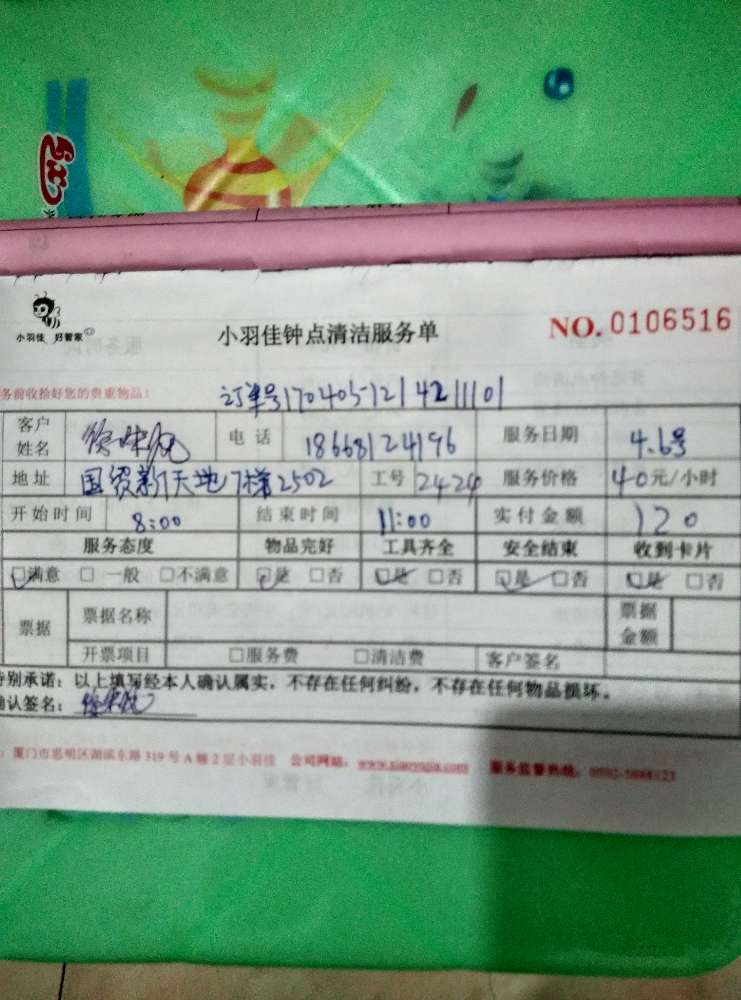 小羽佳 好管家
小羽佳钟点清洁服务单
NO. 0106516
务前收拾好您的贵重物品!
订单号170405-1214211101
客户姓名 电话 18668124196 服务日期 4.6号
地址 国贸新天地7梯2502 工号 2424 服务价格 40元/小时
开始时间 8:00 结束时间 11:00 实付金额 120
服务态度 物品完好 工具齐全 安全结束 收到卡片
满意 一般 不满意 是 否 是 否 是 否 是 否
票据 票据名称 票据金额
开票项目 服务费 清洁费 客户签名
特别承诺:以上填写经本人确认属实,不存在任何纠纷,不存在任何物品损坏。
确认签名:
厦门市思明区湖滨东路 319 号 A 幢 2 层小羽佳 公司网站: 服务监督热线: